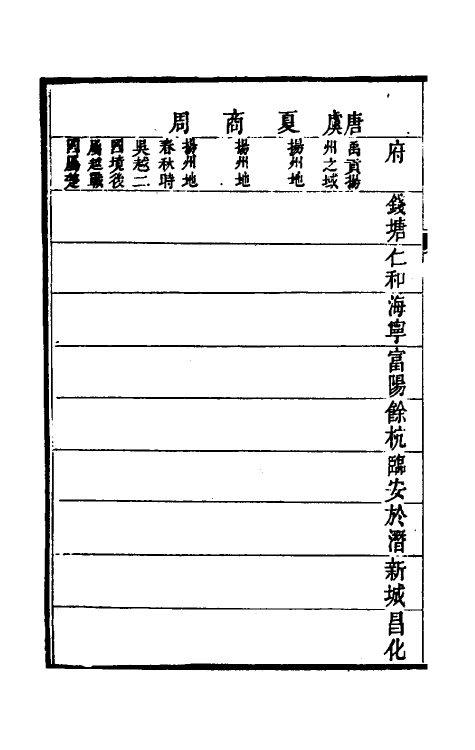 唐虞
夏
商
周
府
禹貢揚
州之域
揚州地
揚州地
揚州地
春秋時
吳越二
國境後
屬越戰
國屬楚
錢塘
仁和
海寧
富陽
餘杭
臨安
於潛
新城
昌化